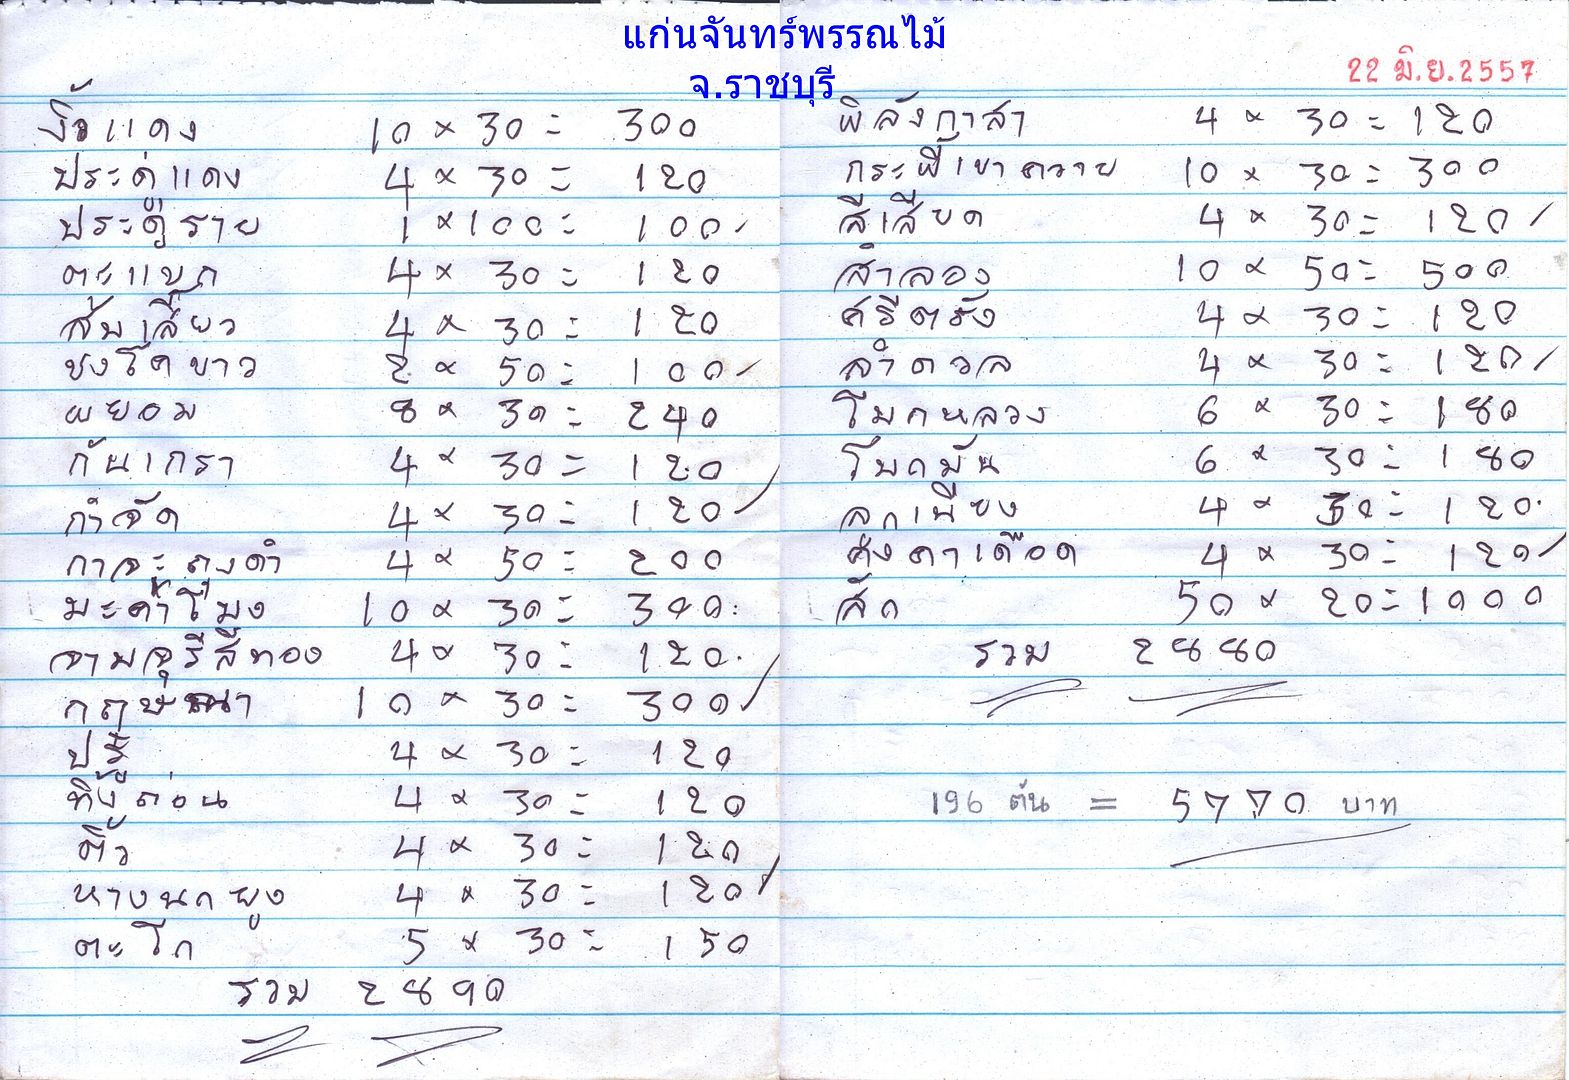 แก่นจันทร์พรรณไม้
จ.ราชบุรี
22 มิ.ย.2557
งิ้วแดง 10 × 30 = 300
ประดู่แดง 4 × 30 = 120
ประดู่ราย 1 × 100 = 100
ตะแบก 4 × 30 = 120
ส้มเสี้ยว 4 × 30 = 120
ชงโคขาว 2 × 50 = 100
พยอม 8 × 30 = 240
กันเกรา 4 × 30 = 120
กำจัด 4 × 30 = 120
กาจะลงดำ 4 × 50 = 200
มะค่าโมง 10 × 30 = 300
จามจุรีสีทอง 4 × 30 = 120
กฤษณา 10 × 30 = 300
ปรู 4 × 30 = 120
ทิ้งถ่อน 4 × 30 = 120
ติ้ว 4 × 30 = 120
หางนกยูง 4 × 30 = 120
ตะโก 5 × 30 = 150
รวม 2890
พิลังกาสา 4 × 30 = 120
กระพี้เขาควาย 10 × 30 = 300
สีเสียด 4 × 30 = 120
สำลอง 10 × 50 = 500
ศรีตรัง 4 × 30 = 120
ลำดวล 4 × 30 = 120
โมกหลวง 6 × 30 = 180
โมกมัน 6 × 30 = 180
ลูกเนียง 4 × 30 = 120
คงคาเดือด 4 × 30 = 120
สัก 50 × 20 = 1000
รวม 2880
196 ต้น = 5770 บาท